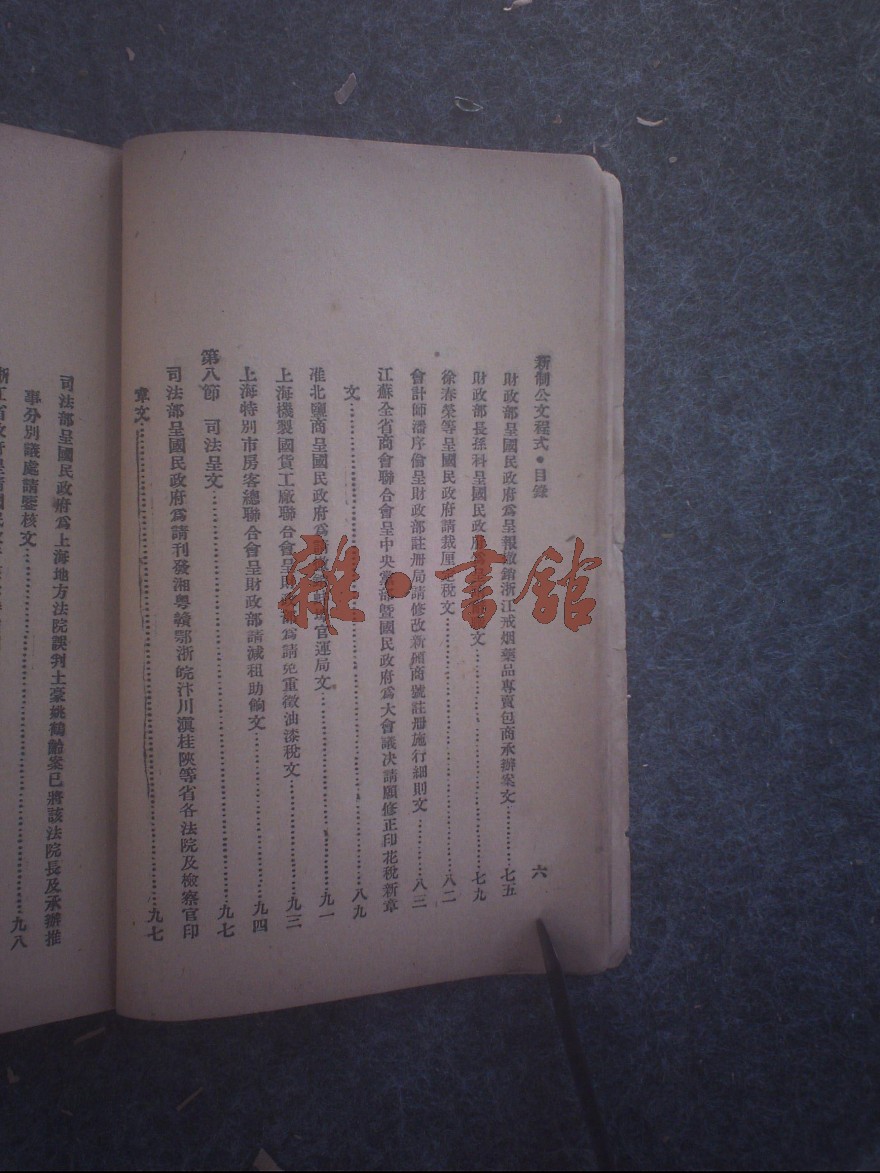 新制公文程式•目錄
六
財政部呈國民政府爲呈報撤銷浙江戒烟藥品專賣包商承辦案文…………七五
財政部長孫科呈國民政府 文…………七九
徐春榮等呈國民政府請裁厘 稅文…………八二
會計師潘序倫呈財政部註册局請修改新頒商號註册施行細則文…………八三
江蘇全省商會聯合會呈中央黨部曁國民政府爲大會議决請願修正印花稅新章
文…………八九
淮北鹽商呈國民政府爲請 官運局文…………九一
上海機製國貨工廠聯合會呈財政部爲請免重徵油漆稅文…………九三
上海特別市房客總聯合會呈財政部請減租助餉文…………九四
第八節 司法呈文…………九七
司法部呈國民政府爲請刊發湘粤贛鄂浙皖汴川滇桂陝等省各法院及檢察官印
章文…………九七
司法部呈國民政府爲上海地方法院誤判土豪姚鶴齡案已將該法院長及承辦推
事分別議處請鑒核文…………九八
雜•書館